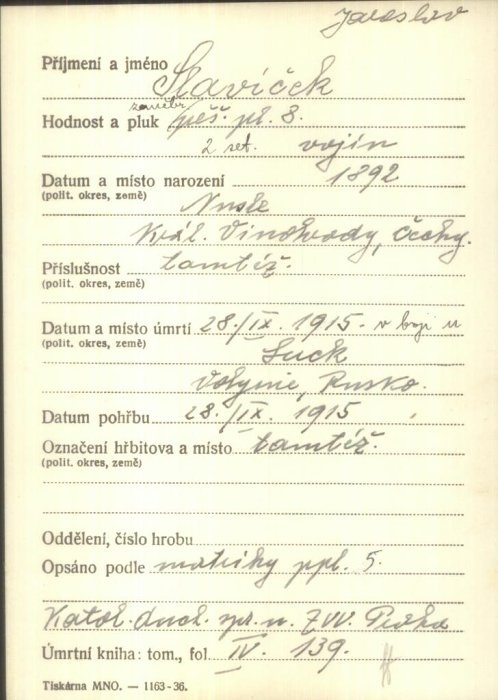 Jaroslav
Příjmení a jméno Slavíček
zeměbr.
Hodnost a pluk pěš. pl. 8.
2 set. vojín
Datum a místo narození 1892
(polit. okres, země)
Nusle
Král. Vinohrady, Čechy.
Příslušnost tamtéž.
(polit. okres, země)
Datum a místo úmrtí 28./IX. 1915 - v boji u
(polit. okres, země)
Luck
Volynie, Rusko.
Datum pohřbu 28./IX. 1915
Označení hřbitova a místo tamtéž.
(polit. okres, země)
Oddělení, číslo hrobu
Opsáno podle matriky ppl. 5.
Katol. duch. spr. u. ZVV. Praha
Úmrtní kniha: tom., fol. IV. 139.
Tiskárna MNO. — 1163-36.